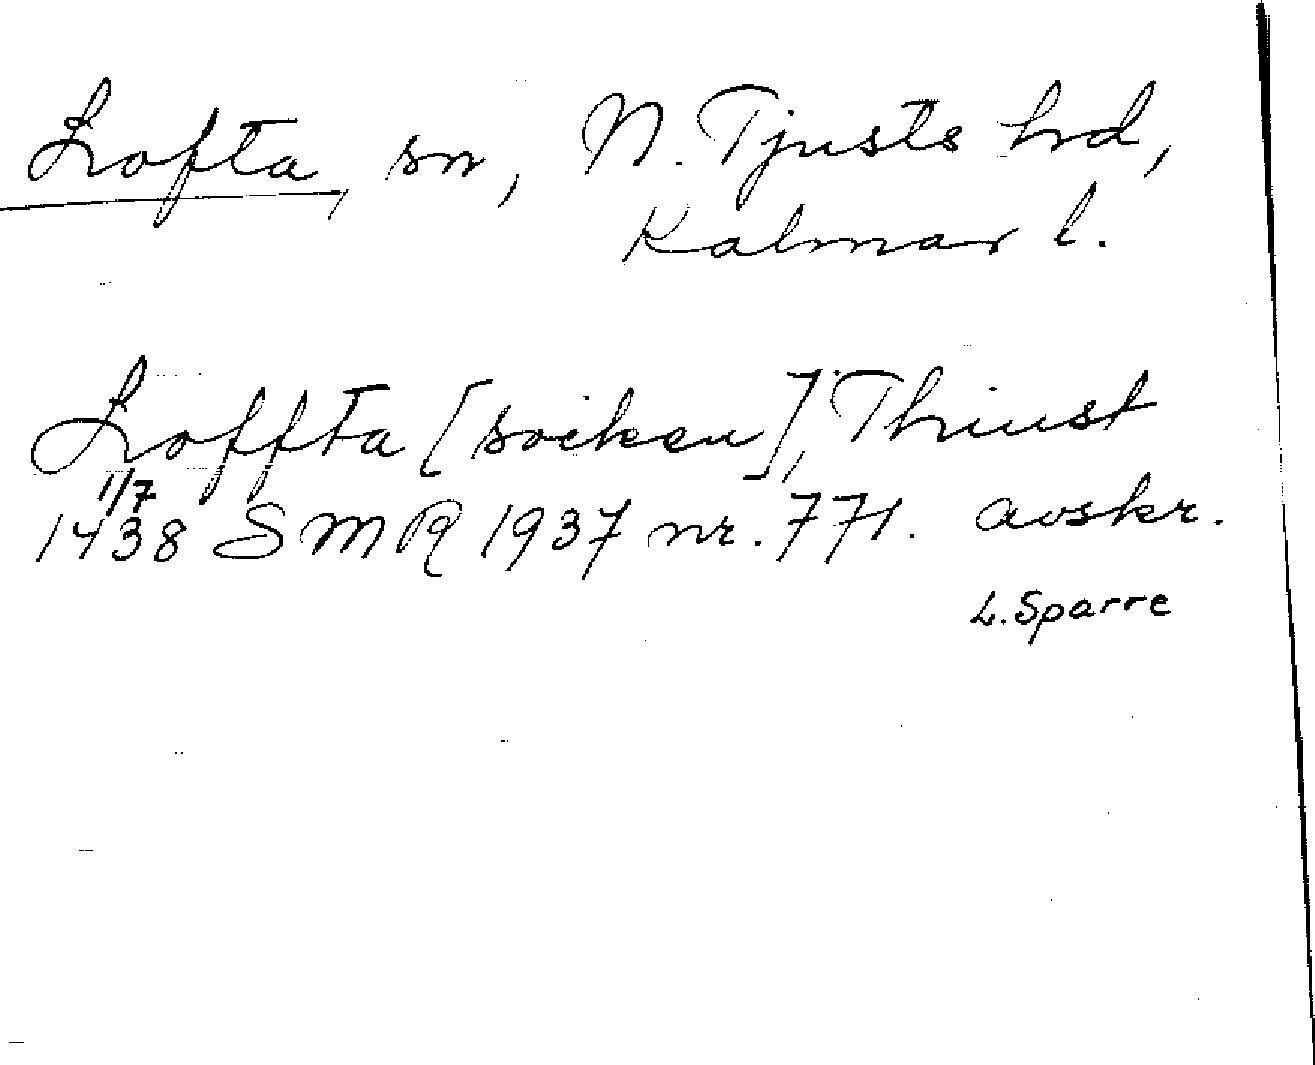 Lofta, sn, N. Tjusts hd,
Kalmar l.
Loffta [socken], Thiust
1/7
1438 SMR 1937 nr. 771. avskr.
L. Sparre